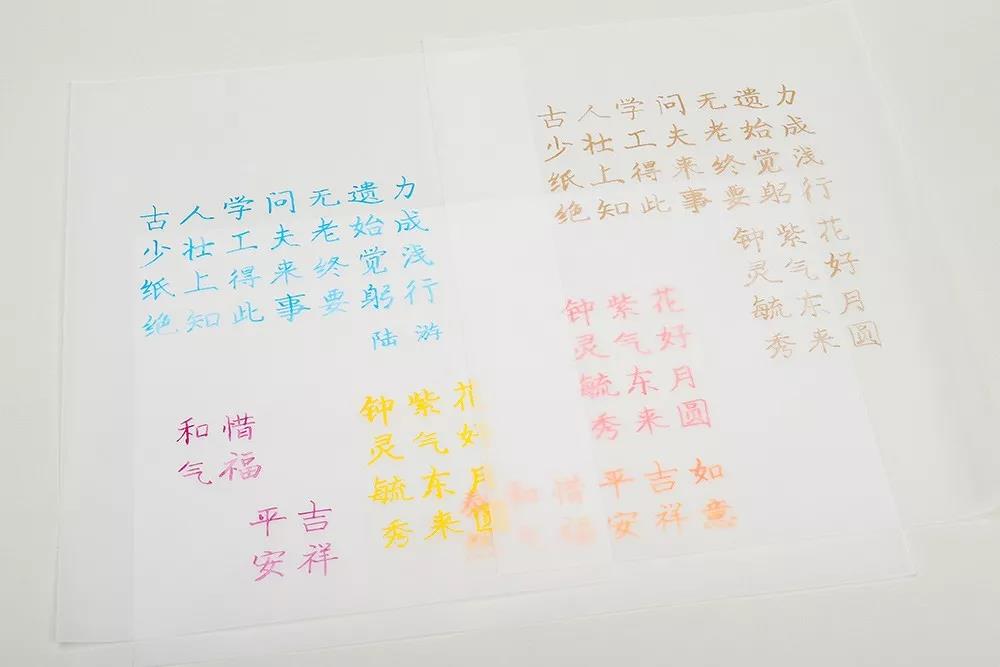 古人学问无遗力
少壮工夫老始成
纸上得来终觉浅
绝知此事要躬行
陆游
和惜
气福
平吉
安祥
钟紫花
灵气好
毓东月
秀来圆
古人学问无遗力
少壮工夫老始成
纸上得来终觉浅
绝知此事要躬行
钟紫花
灵气好
毓东月
秀来圆
钟紫花
灵气好
毓东月
秀来圆
和惜平吉如
气福安祥意